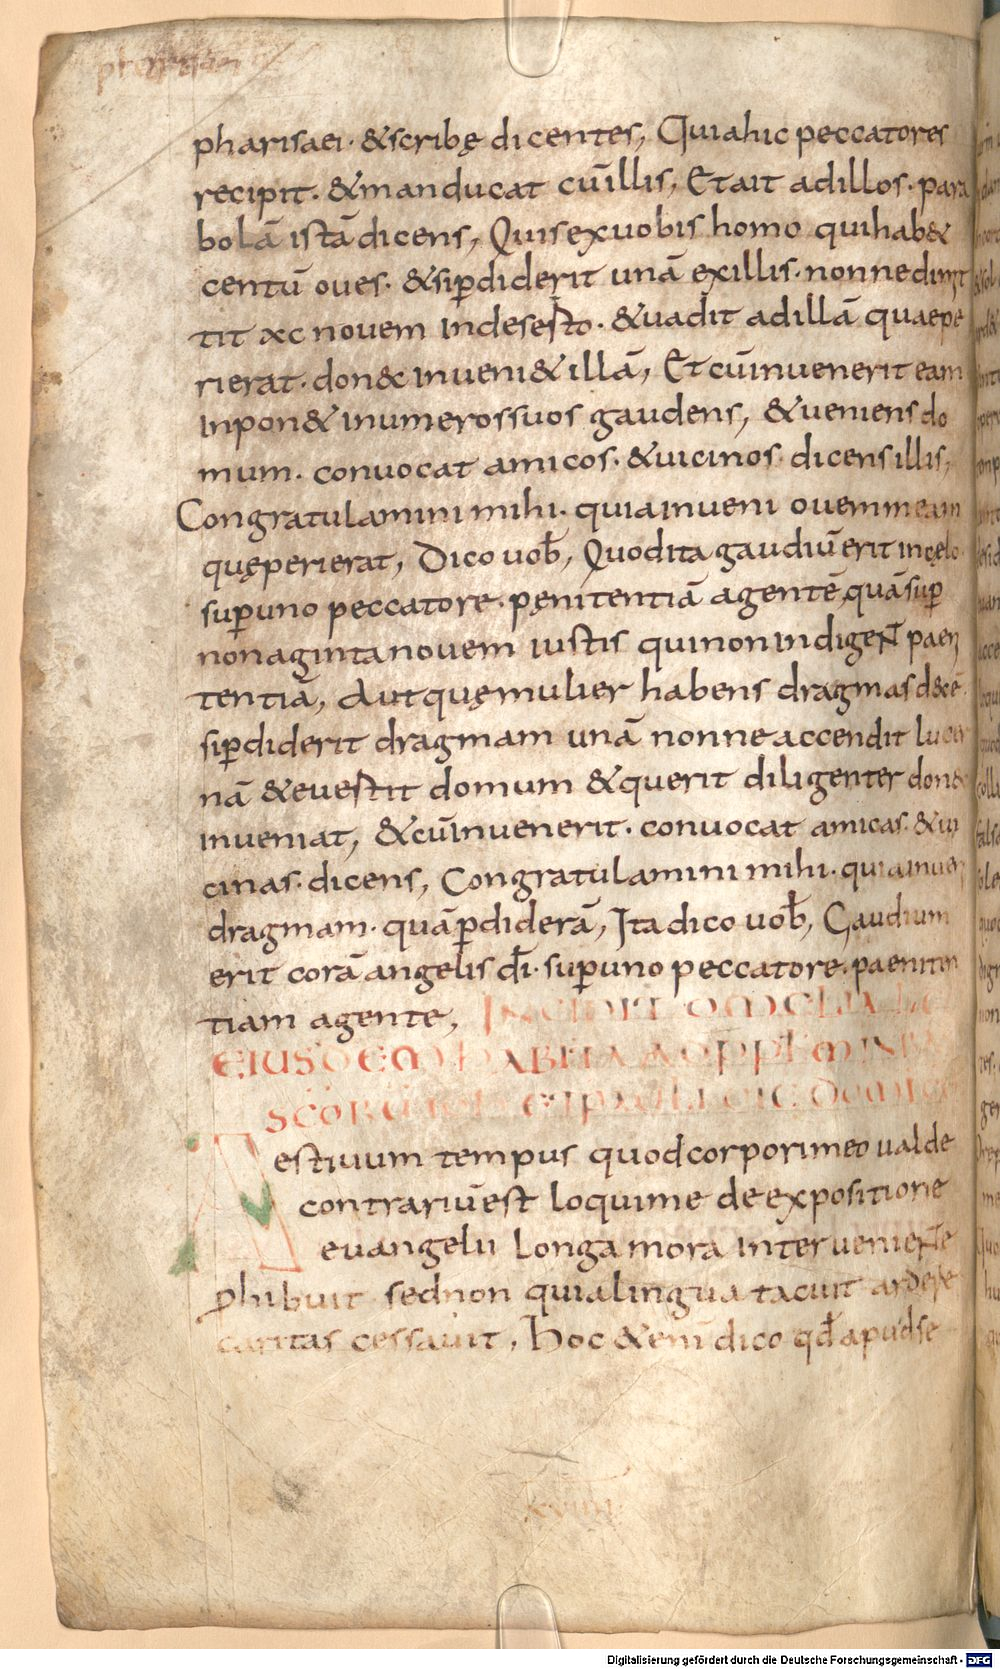 pharisaei · & scribę dicentes, Quia hic peccatores
recipit · & manducat cū illis, Et ait ad illos · para
bolā istā dicens, Quis ex uobis homo qui hab&
centū oues · & si ꝑdiderit unā ex illis · nonne dimit
tit xc nouem in deserto · & uadit ad illā quae pe
rierat · don&c inueni& illā, Et cū inuenerit eam
inpon& in umeros suos gaudens, & ueniens do
mum · conuocat amicos · & uicinos dicens illis,
Congratulamini mihi · quia inueni ouem meam
quę perierat, Dico uob̄, Quod ita gaudiū erit in cęlo
suꝑ uno peccatore · pęnitentiā agentē, quā suꝑ
nonaginta nouem iustis qui non indigent paeni
tentiā, Aut quę mulier habens dragmas d&cē
si ꝑdiderit dragmam unā nonne accendit lucer
nā & euertit domum & querit diligenter don&c
inueniat, & cū inuenerit · conuocat amicas · & ui
cinas · dicens, Congratulamini mihi · quia inueni
dragmam · quā ꝑdiderā, Ita dico uob̄, Gaudium
erit corā angelis dī · suꝑ uno peccatore · paeniten
tiam agente, INCIPIT OMELIA
EIUSDEM HABITA AD PPLM IN
Aestiuum tempus quod corpori meo ualde
contrariū est loqui me de expositione
euangelii longa mora interueniente
ꝓhibuit sed non quia lingua tacuit ardere
caritas cessauit, Hoc & enī dico qđ apud se
xviiii
Digitalisierung gefördert durch die Deutsche Forschungsgemeinschaft - DFG